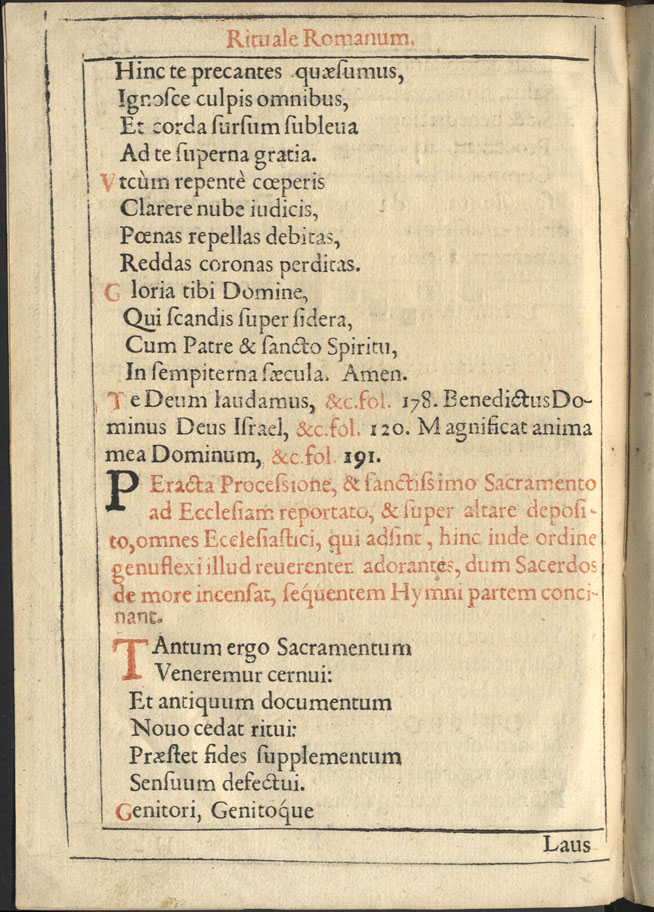 Rituale Romanum.
Hinc te precantes quæſumus,
Ignoſce culpis omnibus,
Et corda ſurſum ſubleua
Ad te ſuperna gratia.
Vtcùm repentè cœperis
Clarere nube iudicis,
Pœnas repellas debitas,
Reddas coronas perditas.
Gloria tibi Domine,
Qui ſcandis ſuper ſidera,
Cum Patre & ſancto Spiritu,
In ſempiterna ſæcula. Amen.
Te Deum laudamus, &c. fol. 178. Benedictus Do-
minus Deus Iſrael, &c. fol. 120. Magnificat anima
mea Dominum, &c. fol 191.
PEracta Proceſsione, & ſanctiſsimo Sacramento
ad Eccleſiam reportato, & ſuper altare depoſi-
to, omnes Eccleſiaſtici, qui adſint, hinc inde ordine
genuflexi illud reuerenter adorantes, dum Sacerdos
de more incenſat, ſequentem Hymni partem conci-
nant.
TAntum ergo Sacramentum
Veneremur cernui:
Et antiquum documentum
Nouo cedat ritui:
Præſtet fides ſupplementum
Senſuum defectui.
Genitori, Genitoq́ue
Laus